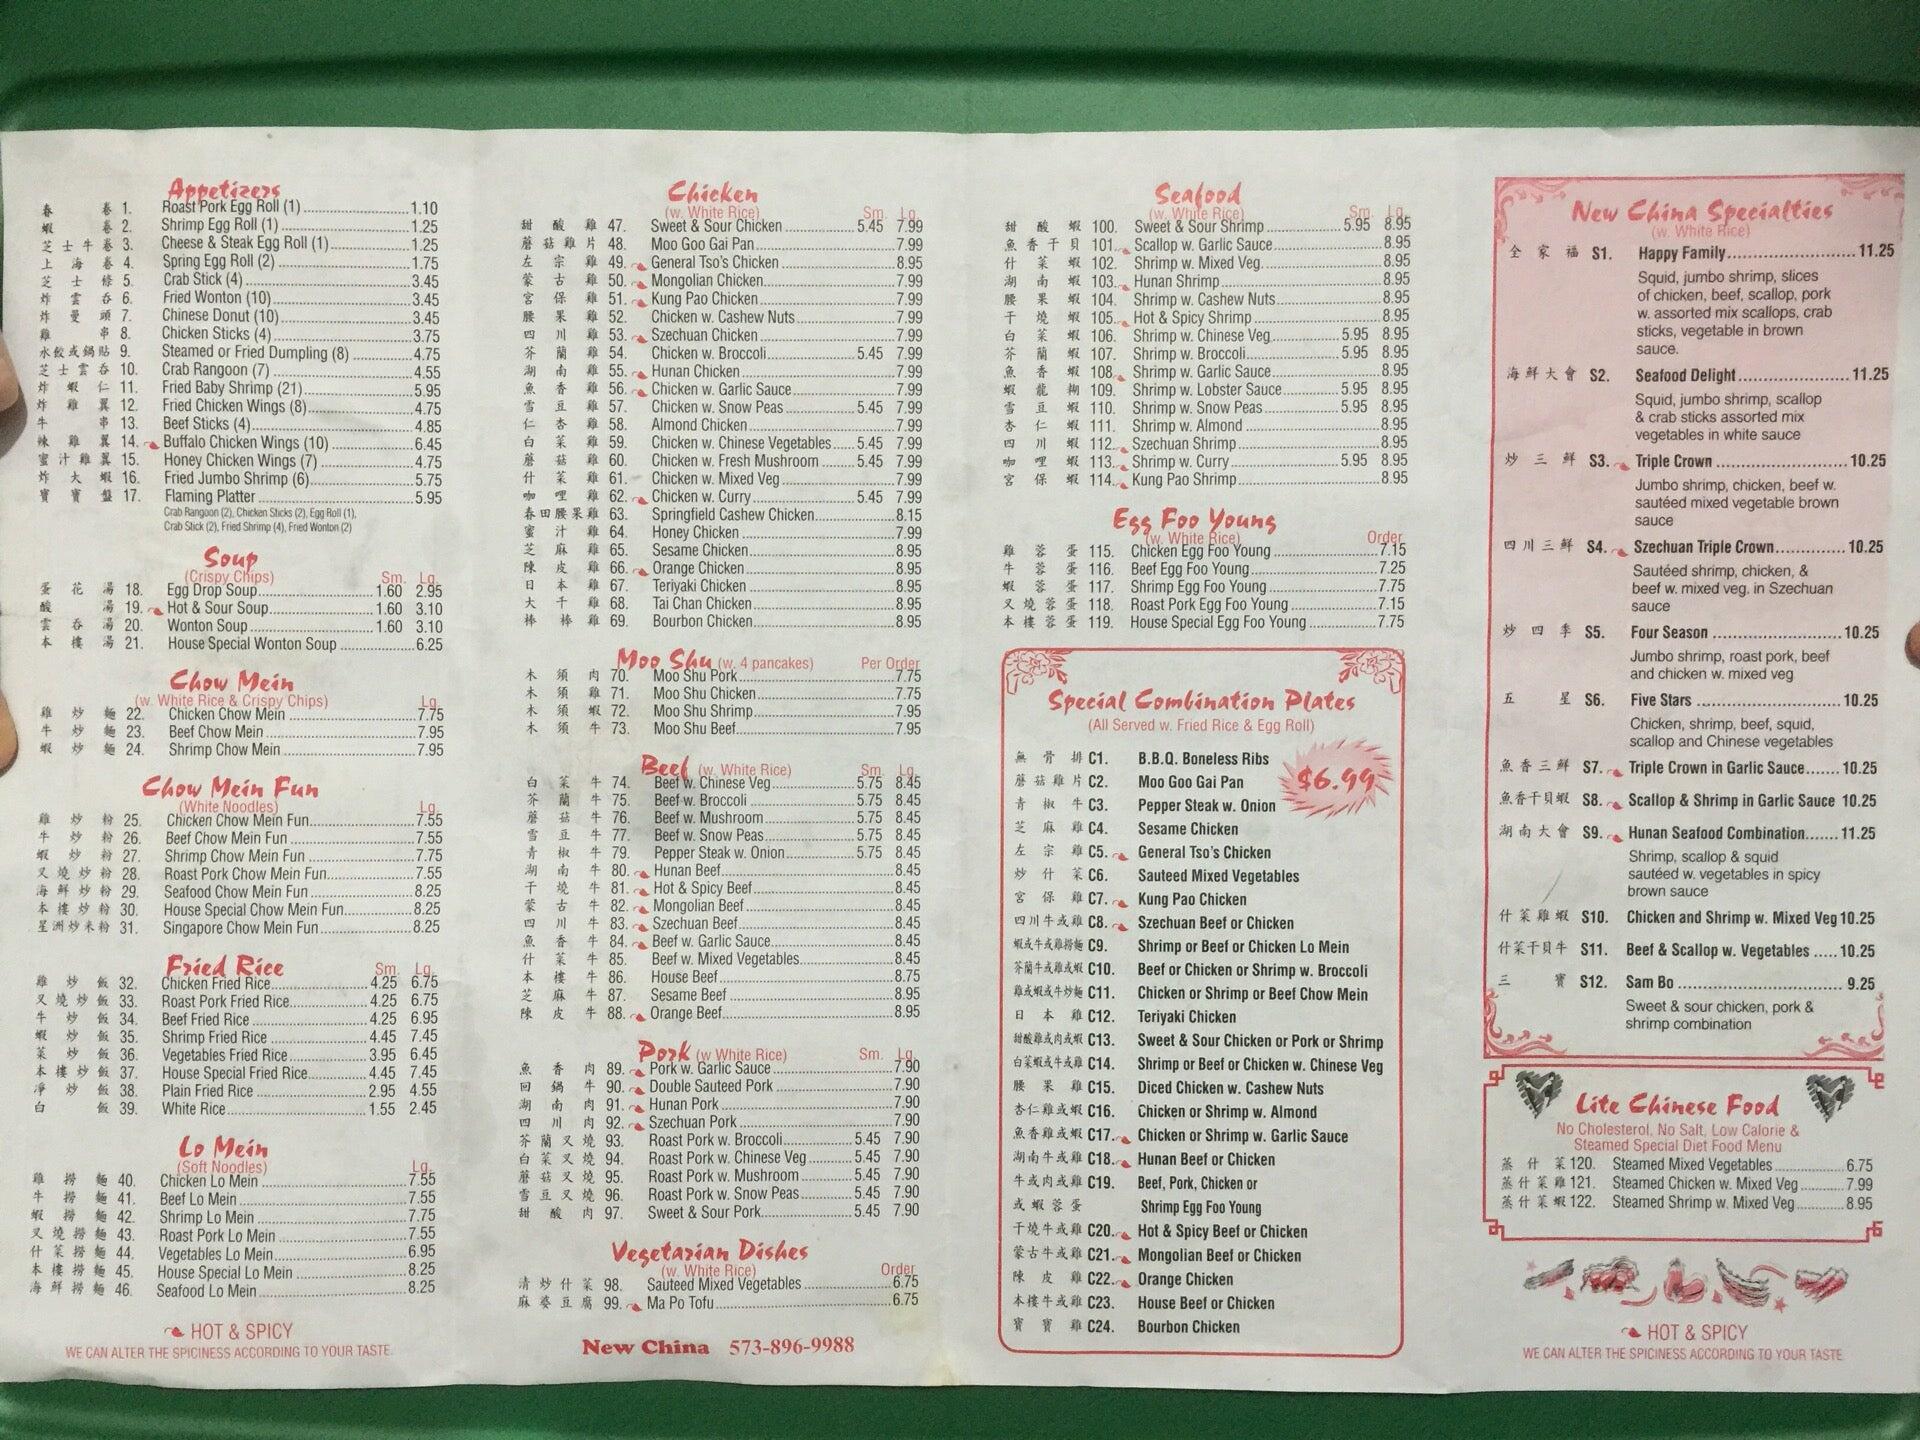 Appetizers
春 卷 1. Roast Pork Egg Roll (1) 1.10
蝦 卷 2. Shrimp Egg Roll (1) 1.25
芝士牛卷 3. Cheese & Steak Egg Roll (1) 1.25
上海卷 4. Spring Egg Roll (2) 1.75
芝士條 5. Crab Stick (4) 3.45
炸雲吞 6. Fried Wonton (10) 3.45
炸曼頭 7. Chinese Donut (10) 3.45
雞 串 8. Chicken Sticks (4) 3.75
水餃或鍋貼 9. Steamed or Fried Dumpling (8) 4.75
芝士雲吞 10. Crab Rangoon (7) 4.55
炸蝦仁 11. Fried Baby Shrimp (21) 5.95
炸雞翼 12. Fried Chicken Wings (8) 4.75
牛 串 13. Beef Sticks (4) 4.85
辣雞翼 14. Buffalo Chicken Wings (10) 6.45
蜜汁雞翼 15. Honey Chicken Wings (7) 4.75
炸大蝦 16. Fried Jumbo Shrimp (6) 5.75
寶寶盤 17. Flaming Platter 5.95
Crab Rangoon (2), Chicken Sticks (2), Egg Roll (1),
Crab Stick (2), Fried Shrimp (4), Fried Wonton (2)
Soup
(Crispy Chips) Sm. Lg.
蛋花湯 18. Egg Drop Soup 1.60 2.95
酸 湯 19. Hot & Sour Soup 1.60 3.10
雲吞湯 20. Wonton Soup 1.60 3.10
本樓湯 21. House Special Wonton Soup 6.25
Chow Mein
(w. White Rice & Crispy Chips) Lg.
雞炒麵 22. Chicken Chow Mein 7.75
牛炒麵 23. Beef Chow Mein 7.95
蝦炒麵 24. Shrimp Chow Mein 7.95
Chow Mein Fun
(White Noodles) Lg.
雞炒粉 25. Chicken Chow Mein Fun 7.55
牛炒粉 26. Beef Chow Mein Fun 7.55
蝦炒粉 27. Shrimp Chow Mein Fun 7.75
叉燒炒粉 28. Roast Pork Chow Mein Fun 7.55
海鮮炒粉 29. Seafood Chow Mein Fun 8.25
本樓炒粉 30. House Special Chow Mein Fun 8.25
星洲炒米粉 31. Singapore Chow Mein Fun 8.25
Fried Rice Sm. Lg.
雞炒飯 32. Chicken Fried Rice 4.25 6.75
叉燒炒飯 33. Roast Pork Fried Rice 4.25 6.75
牛炒飯 34. Beef Fried Rice 4.25 6.95
蝦炒飯 35. Shrimp Fried Rice 4.45 7.45
菜炒飯 36. Vegetables Fried Rice 3.95 6.45
本樓炒飯 37. House Special Fried Rice 4.45 7.45
凈炒飯 38. Plain Fried Rice 2.95 4.55
白 飯 39. White Rice 1.55 2.45
Lo Mein
(Soft Noodles) Lg.
雞撈麵 40. Chicken Lo Mein 7.55
牛撈麵 41. Beef Lo Mein 7.55
蝦撈麵 42. Shrimp Lo Mein 7.75
叉燒撈麵 43. Roast Pork Lo Mein 7.55
什菜撈麵 44. Vegetables Lo Mein 6.95
本樓撈麵 45. House Special Lo Mein 8.25
海鮮撈麵 46. Seafood Lo Mein 8.25
HOT & SPICY
WE CAN ALTER THE SPICINESS ACCORDING TO YOUR TASTE.
Chicken
(w. White Rice) Sm. Lg.
甜酸雞 47. Sweet & Sour Chicken 5.45 7.99
蘑菇雞片 48. Moo Goo Gai Pan 7.99
左宗雞 49. General Tso's Chicken 8.95
蒙古雞 50. Mongolian Chicken 7.99
宮保雞 51. Kung Pao Chicken 7.99
腰果雞 52. Chicken w. Cashew Nuts 7.99
四川雞 53. Szechuan Chicken 7.99
芥蘭雞 54. Chicken w. Broccoli 5.45 7.99
湖南雞 55. Hunan Chicken 7.99
魚香雞 56. Chicken w. Garlic Sauce 7.99
雪豆雞 57. Chicken w. Snow Peas 5.45 7.99
仁杏雞 58. Almond Chicken 7.99
白菜雞 59. Chicken w. Chinese Vegetables 5.45 7.99
蘑菇雞 60. Chicken w. Fresh Mushroom 5.45 7.99
什菜雞 61. Chicken w. Mixed Veg 7.99
咖哩雞 62. Chicken w. Curry 5.45 7.99
春田腰果雞 63. Springfield Cashew Chicken 8.15
蜜汁雞 64. Honey Chicken 7.99
芝麻雞 65. Sesame Chicken 8.95
陳皮雞 66. Orange Chicken 8.95
日本雞 67. Teriyaki Chicken 8.95
大千雞 68. Tai Chan Chicken 8.95
棒棒雞 69. Bourbon Chicken 8.95
Moo Shu (w. 4 pancakes) Per Order
木須肉 70. Moo Shu Pork 7.75
木須雞 71. Moo Shu Chicken 7.75
木須蝦 72. Moo Shu Shrimp 7.95
木須牛 73. Moo Shu Beef 7.95
Beef (w. White Rice) Sm. Lg.
白菜牛 74. Beef w. Chinese Veg 5.75 8.45
芥蘭牛 75. Beef w. Broccoli 5.75 8.45
蘑菇牛 76. Beef w. Mushroom 5.75 8.45
雪豆牛 77. Beef w. Snow Peas 5.75 8.45
青椒牛 79. Pepper Steak w. Onion 5.75 8.45
湖南牛 80. Hunan Beef 8.45
干燒牛 81. Hot & Spicy Beef 8.45
蒙古牛 82. Mongolian Beef 8.45
四川牛 83. Szechuan Beef 8.45
魚香牛 84. Beef w. Garlic Sauce 8.45
什菜牛 85. Beef w. Mixed Vegetables 8.45
本樓牛 86. House Beef 8.75
芝麻牛 87. Sesame Beef 8.95
陳皮牛 88. Orange Beef 8.95
Pork (w White Rice) Sm. Lg.
魚香肉 89. Pork w. Garlic Sauce 7.90
回鍋牛 90. Double Sauteed Pork 7.90
湖南肉 91. Hunan Pork 7.90
四川肉 92. Szechuan Pork 7.90
芥蘭叉燒 93. Roast Pork w. Broccoli 5.45 7.90
白菜叉燒 94. Roast Pork w. Chinese Veg 5.45 7.90
蘑菇叉燒 95. Roast Pork w. Mushroom 5.45 7.90
雪豆叉燒 96. Roast Pork w. Snow Peas 5.45 7.90
甜酸肉 97. Sweet & Sour Pork 5.45 7.90
Vegetarian Dishes
(w. White Rice) Order
清炒什菜 98. Sauteed Mixed Vegetables 6.75
麻婆豆腐 99. Ma Po Tofu 6.75
New China 573-896-9988
Seafood
(w. White Rice) Sm. Lg.
甜酸蝦 100. Sweet & Sour Shrimp 5.95 8.95
魚香干貝 101. Scallop w. Garlic Sauce 8.95
什菜蝦 102. Shrimp w. Mixed Veg. 8.95
湖南蝦 103. Hunan Shrimp 8.95
腰果蝦 104. Shrimp w. Cashew Nuts 8.95
干燒蝦 105. Hot & Spicy Shrimp 8.95
白菜蝦 106. Shrimp w. Chinese Veg 5.95 8.95
芥蘭蝦 107. Shrimp w. Broccoli 5.95 8.95
魚香蝦 108. Shrimp w. Garlic Sauce 8.95
蝦龍糊 109. Shrimp w. Lobster Sauce 5.95 8.95
雪豆蝦 110. Shrimp w. Snow Peas 5.95 8.95
杏仁蝦 111. Shrimp w. Almond 8.95
四川蝦 112. Szechuan Shrimp 8.95
咖哩蝦 113. Shrimp w. Curry 5.95 8.95
宮保蝦 114. Kung Pao Shrimp 8.95
Egg Foo Young
(w. White Rice) Order
雞蓉蛋 115. Chicken Egg Foo Young 7.15
牛蓉蛋 116. Beef Egg Foo Young 7.25
蝦蓉蛋 117. Shrimp Egg Foo Young 7.75
叉燒蓉蛋 118. Roast Pork Egg Foo Young 7.15
本樓蓉蛋 119. House Special Egg Foo Young 7.75
Special Combination Plates
(All Served w. Fried Rice & Egg Roll)
$6.99
無骨排 C1. B.B.Q. Boneless Ribs
蘑菇雞片 C2. Moo Goo Gai Pan
青椒牛 C3. Pepper Steak w. Onion
芝麻雞 C4. Sesame Chicken
左宗雞 C5. General Tso's Chicken
炒什菜 C6. Sauteed Mixed Vegetables
宮保雞 C7. Kung Pao Chicken
四川牛或雞 C8. Szechuan Beef or Chicken
蝦或牛或雞撈麵 C9. Shrimp or Beef or Chicken Lo Mein
芥蘭牛或雞或蝦 C10. Beef or Chicken or Shrimp w. Broccoli
雞或蝦或牛炒麵 C11. Chicken or Shrimp or Beef Chow Mein
日本雞 C12. Teriyaki Chicken
甜酸雞或肉或蝦 C13. Sweet & Sour Chicken or Pork or Shrimp
白菜蝦或牛或雞 C14. Shrimp or Beef or Chicken w. Chinese Veg
腰果雞 C15. Diced Chicken w. Cashew Nuts
杏仁雞或蝦 C16. Chicken or Shrimp w. Almond
魚香雞或蝦 C17. Chicken or Shrimp w. Garlic Sauce
湖南牛或雞 C18. Hunan Beef or Chicken
牛或肉或雞 C19. Beef, Pork, Chicken or
或蝦蓉蛋 Shrimp Egg Foo Young
干燒牛或雞 C20. Hot & Spicy Beef or Chicken
蒙古牛或雞 C21. Mongolian Beef or Chicken
陳皮雞 C22. Orange Chicken
本樓牛或雞 C23. House Beef or Chicken
寶寶雞 C24. Bourbon Chicken
New China Specialties
(w. White Rice)
全家福 S1. Happy Family 11.25
Squid, jumbo shrimp, slices
of chicken, beef, scallop, pork
w. assorted mix scallops, crab
sticks, vegetable in brown
sauce.
海鮮大會 S2. Seafood Delight 11.25
Squid, jumbo shrimp, scallop
& crab sticks assorted mix
vegetables in white sauce
炒三鮮 S3. Triple Crown 10.25
Jumbo shrimp, chicken, beef w.
sautéed mixed vegetable brown
sauce
四川三鮮 S4. Szechuan Triple Crown 10.25
Sautéed shrimp, chicken, &
beef w. mixed veg. in Szechuan
sauce
炒四季 S5. Four Season 10.25
Jumbo shrimp, roast pork, beef
and chicken w. mixed veg
五 星 S6. Five Stars 10.25
Chicken, shrimp, beef, squid,
scallop and Chinese vegetables
魚香三鮮 S7. Triple Crown in Garlic Sauce 10.25
魚香干貝蝦 S8. Scallop & Shrimp in Garlic Sauce 10.25
湖南大會 S9. Hunan Seafood Combination 11.25
Shrimp, scallop & squid
sautéed w. vegetables in spicy
brown sauce
什菜雞蝦 S10. Chicken and Shrimp w. Mixed Veg 10.25
什菜干貝牛 S11. Beef & Scallop w. Vegetables 10.25
三 寶 S12. Sam Bo 9.25
Sweet & sour chicken, pork &
shrimp combination
Lite Chinese Food
No Cholesterol, No Salt, Low Calorie &
Steamed Special Diet Food Menu
蒸什菜 120. Steamed Mixed Vegetables 6.75
蒸什菜雞 121. Steamed Chicken w. Mixed Veg 7.99
蒸什菜蝦 122. Steamed Shrimp w. Mixed Veg 8.95
HOT & SPICY
WE CAN ALTER THE SPICINESS ACCORDING TO YOUR TASTE